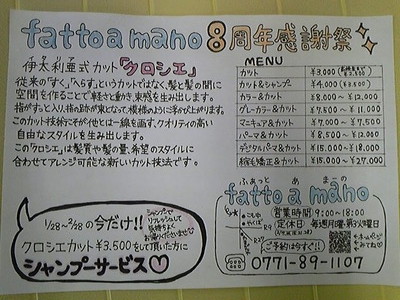 fatto a mano 8周年感謝祭
伊太利亜式カット「クロシェ」
従来の「すく」「へらす」というカットではなく、髪と髪の間に
空間を作ることで軽さと動き、束感を生み出します。
指がすっと入り、指の跡が束となって、模様のように浮かび上がります。
このカット技術こそが他とは一線を画す、クオリティの高い
自由なスタイルを生み出します。
この「クロシェ」は髪質や髪の量、希望のスタイルに
合わせてアレンジ可能な新しいカット技法です。
MENU
カット ¥3,000
カット&シャンプー ¥4,000
カラー&カット ¥8,000〜¥12,000
グレーカラー&カット ¥7,500〜¥11,000
マニキュア&カット ¥7,000〜¥7,500
パーマ&カット ¥8,500〜¥12,000
デジタルパーマ&カット ¥15,000〜¥18,000
縮毛矯正&カット ¥15,000〜¥27,000
1/28〜2/28の今だけ!!
シャンプーで
リフレッシュして
気持ちよく
お帰りくださいませ
クロシェカット¥3,500をして頂いた方に
シャンプーサービス♡
ふぁっと あ まーの
fatto a mano
営業時間 9:00〜18:00
定休日 毎週月曜・第3火曜日
ご予約は今すぐ!!
0771-89-1107